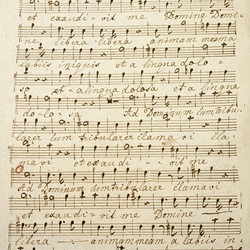 et exaudi - vit me Domine Domi
ne libera libera animam meam a
labiis iniquis et a lingua dolo -
sa et a lingua dolosa et a lingua
do - lo - sa Ad Dominum cum tribu
larer cum tribularer clama vi cla
ma vi et exaudi - vit me
Ad Dominum dum tribularer clamavi
et exaudi - vit me Domine
libera animam meam a labiis in